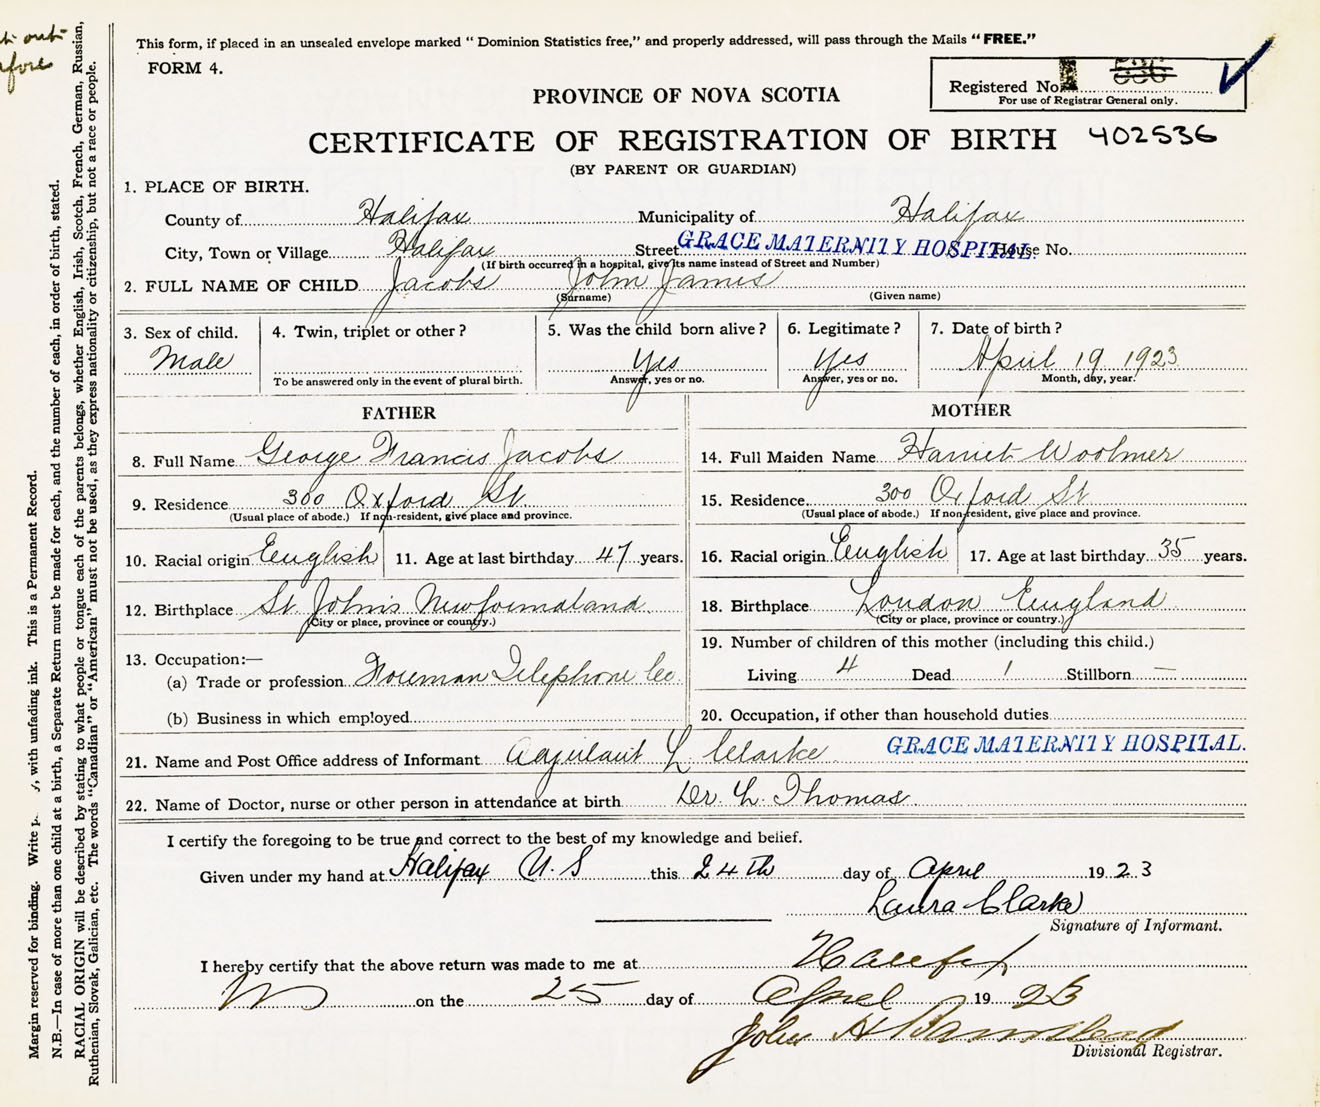 This form, if placed in an unsealed envelope marked "Dominion Statistics free," and properly addressed, will pass through the Mails "FREE."
FORM 4.
Registered No.
For use of Registrar General only.
PROVINCE OF NOVA SCOTIA
CERTIFICATE OF REGISTRATION OF BIRTH 402536
(BY PARENT OR GUARDIAN)
1. PLACE OF BIRTH.
County of Halifax Municipality of Halifax
City, Town or Village Halifax Street GRACE MATERNITY HOSPITAL. House No.
(If birth occurred in a hospital, give its name instead of Street and Number)
2. FULL NAME OF CHILD Jacobs John James
(Surname) (Given name)
3. Sex of child. 4. Twin, triplet or other? 5. Was the child born alive? 6. Legitimate? 7. Date of birth?
Male Yes Yes April 19 1923
To be answered only in the event of plural birth. Answer, yes or no. Answer, yes or no. Month, day, year.
FATHER MOTHER
8. Full Name George Francis Jacobs 14. Full Maiden Name Harriet Woolmer
9. Residence 300 Oxford St. 15. Residence 300 Oxford St
(Usual place of abode.) If non-resident, give place and province. (Usual place of abode.) If non-resident, give place and province.
10. Racial origin English 11. Age at last birthday 47 years. 16. Racial origin English 17. Age at last birthday 35 years.
12. Birthplace St. John's Newfoundland 18. Birthplace London England
(City or place, province or country.) (City or place, province or country.)
19. Number of children of this mother (including this child.)
13. Occupation:—
(a) Trade or profession Foreman Telephone Co. Living 4 Dead 1 Stillborn —
(b) Business in which employed 20. Occupation, if other than household duties
21. Name and Post Office address of Informant Adjutant L Clarke GRACE MATERNITY HOSPITAL.
22. Name of Doctor, nurse or other person in attendance at birth Dr. L. Thomas
I certify the foregoing to be true and correct to the best of my knowledge and belief.
Given under my hand at Halifax N.S this 24th day of April 1923
Laura Clarke
Signature of Informant.
I hereby certify that the above return was made to me at Halifax
on the 25 day of April 1923
John H Barnstead
Divisional Registrar.
Margin reserved for binding. Write with unfading ink. This is a Permanent Record.
N.B.—In case of more than one child at a birth, a Separate Return must be made for each, and the number of each, in order of birth, stated.
RACIAL ORIGIN will be described by stating to what people or tongue each of the parents belongs, whether English, Irish, Scotch, French, German, Russian,
Ruthenian, Slovak, Galician, etc. The words "Canadian" or "American" must not be used, as they express nationality or citizenship, but not a race or people.